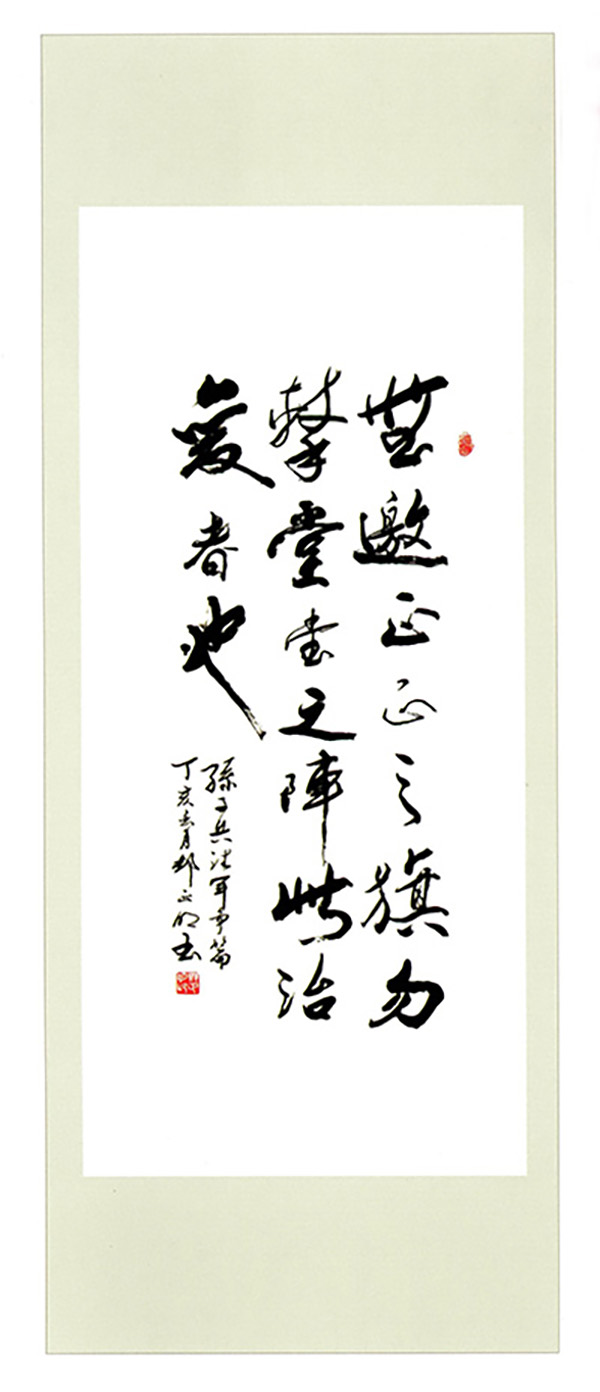 無邀正正之旗勿
擊堂堂之陣此治
變者也
孫子兵法軍爭篇
丁亥月书